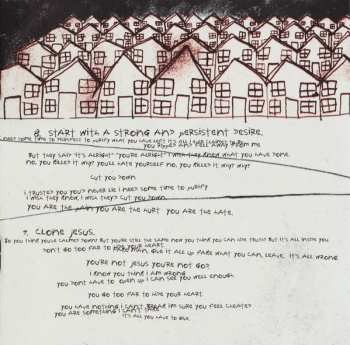 8. START WITH A STRONG AND PERSISTENT DESIRE.
I NEED SOME TIME TO PURIFY WHAT YOU HAVE LEFT
YOU RIPPED AND FELL AWAY FROM ME
BUT THEY SAY "IT'S ALRIGHT" "YOU'RE ALRIGHT" I WISH THEY KNEW WHAT YOU HAVE DONE.
NO, YOU WHY? YOU'LL HATE YOURSELF NO, YOU WHY?
CUT YOU DOWN
I TRUSTED YOU YOU'D NEVER LIE I NEED SOME TIME TO PURIFY
I WISH THEY KNEW, I WISH THEY'D CUT YOU DOWN
YOU ARE THE PAIN YOU ARE THE HURT YOU ARE THE HATE.
9. CLONE JESUS.
DO YOU THINK YOU'VE CALMED DOWN? BUT YOU'RE STILL THE SAME NOW YOU THINK YOU CAN HIDE TRUTH? BUT IT'S ALL INSIDE YOU
DON'T GO TOO FAR TO HIDE YOUR HEART.
GIVE IT ALL UP FAKE WHAT YOU CAN, LEAVE. IT'S ALL WRONG
YOU'RE NOT JESUS YOU'RE NOT GOD?
I KNOW YOU THINK I AM WRONG
YOU DON'T HAVE TO EVEN UP I CAN SEE YOU WELL ENOUGH.
YOU GO TOO FAR TO HIDE YOUR HEART.
YOU HAVE NOTHING I CAN'T BREAK I'M SURE YOU FEEL CHEATED?
YOU ARE SOMETHING I CAN'T TAKE
IT'S ALL YOU HAVE TO GIVE.